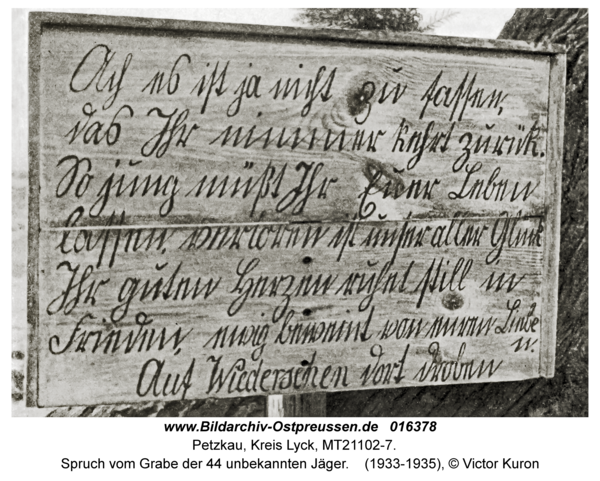 Ach es ist ja nicht zu fassen,
das Ihr nimmer kehrt zurück.
So jung müßt Ihr Euer Leben
lassen, verloren ist unser aller Glück
Ihr guten Herzen ruhet still in
Frieden, ewig beweint von euren Liebe
n.
Auf Wiedersehen dort droben
www.Bildarchiv-Ostpreussen.de 016378
Petzkau, Kreis Lyck, MT21102-7.
Spruch vom Grabe der 44 unbekannten Jäger. (1933-1935), © Victor Kuron